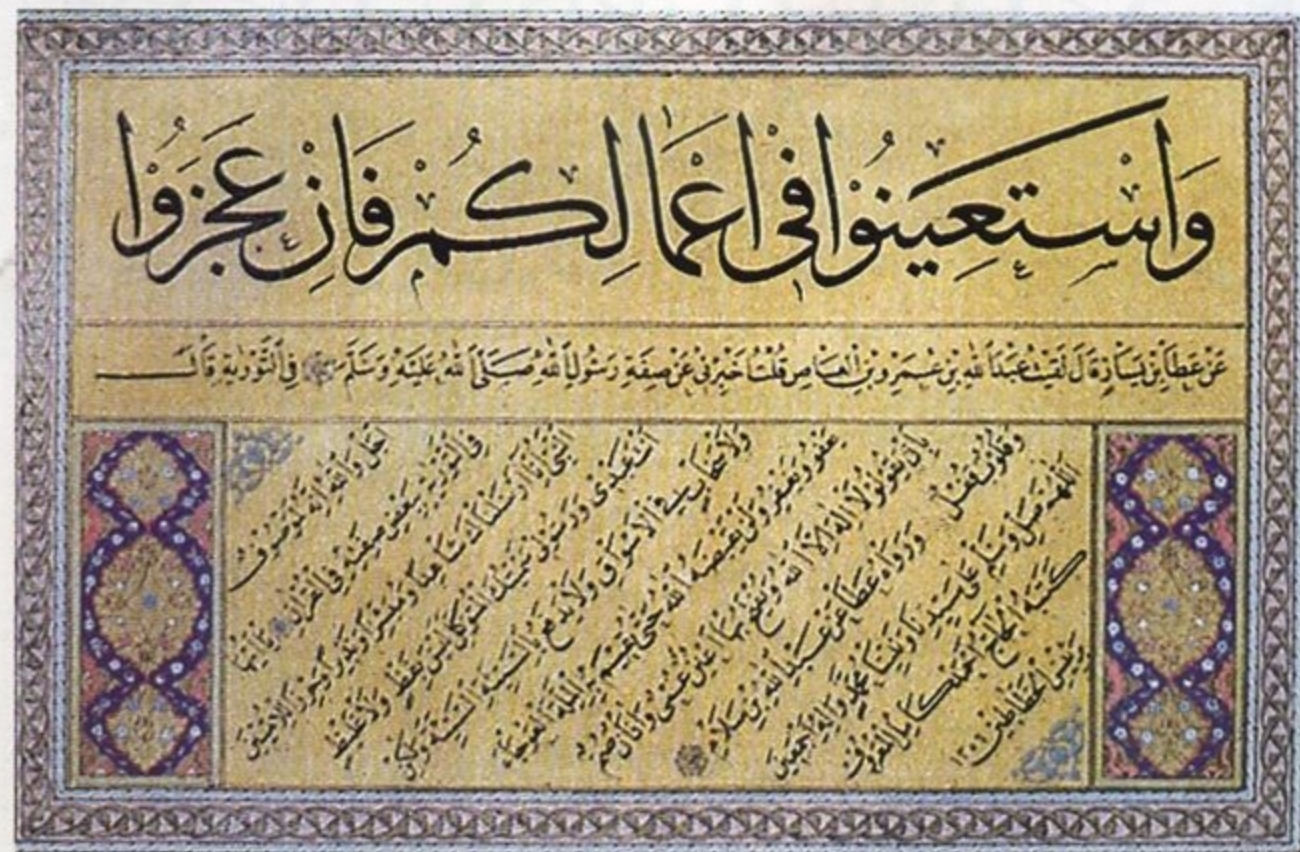 وَاسْتَعِينُوا فِي اَعْمَالِكُمْ فَاِنْ عَجَزُوْا
عَنْ عَطَاءِ بْنِ يَسَارٍ قَالَ لَقِيتُ عَبْدَ اللهِ بْنَ عَمْرِو بْنِ الْعَاصِ قُلْتُ اَخْبِرْنِي عَنْ صِفَةِ رَسُولِ اللهِ صَلَّى اللهُ عَلَيْهِ وَسَلَّمَ فِي التَّوْرٰيةِ قَالَ
اَجَلْ وَاللهِ اِنَّهُ لَمَوْصُوفٌ
فِي التَّوْرٰيةِ بِبَعْضِ صِفَتِهِ فِي الْقُرْاٰنِ يَا اَيُّهَا
النَّبِيُّ اِنَّا اَرْسَلْنَاكَ شَاهِدًا وَمُبَشِّرًا وَنَذِيرًا وَحِرْزًا لِلْاُمِّيِّينَ
اَنْتَ عَبْدِي وَرَسُولِي سَمَّيْتُكَ الْمُتَوَكِّلَ لَيْسَ بِفَظٍّ وَلَا غَلِيظٍ
وَلَا سَخَّابٍ فِي الْاَسْوَاقِ وَلَا يَدْفَعُ بِالسَّيِّئَةِ السَّيِّئَةَ وَلٰكِنْ
يَعْفُو وَيَغْفِرُ وَلَنْ يَقْبِضَهُ اللهُ حَتَّى يُقِيمَ بِهِ الْمِلَّةَ الْعَوْجَاءَ
بِاَنْ يَقُولُوا لَا اِلٰهَ اِلَّا اللهُ وَيَفْتَحُ بِهَا اَعْيُنٌ عُمْيٌ وَاٰذَانٌ صُمٌّ
وَقُلُوبٌ غُلْفٌ وَرَوَاهُ عَطَاءٌ عَنْ عَبْدِ اللهِ بْنِ سَلَامٍ
اَللّٰهُمَّ صَلِّ وَسَلِّمْ عَلَى سَيِّدِنَا وَنَبِيِّنَا مُحَمَّدٍ وَاٰلِهِ اَجْمَعِينَ
كَتَبَهُ الْحَاجُّ اَحْمَدُ كَامِلُ الْمَعْرُوفُ
بِرَئِيسِ الْخَطَّاطِينَ